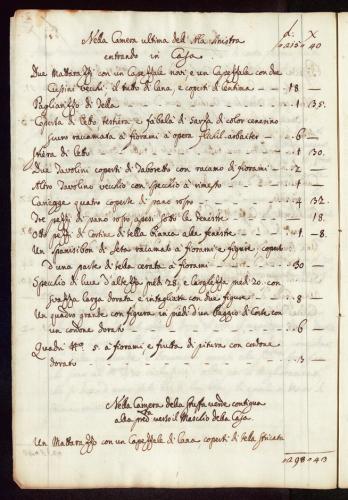 d: X
0215 40
Nella Camera ultima dell'Ala sinistra
entrando in Casa.
Due Mattarazzi con un Capezzale novi e un Capezzale con due
Cussini vecchi. il tutto di lana, e coperti di bentina — 18 —
Paglianizzo di Della — 1 35.
Coperta di letto testiera e fabalà di sarza di color cenerino
scuro raccamata a fiorami a opera — 6 —
letiera di letto — 1 30.
Due Tavolini coperti di Taboretto con racamo di fiorami — 2 —
Altro Tavolino vecchio con specchio a rimesso — 1 —
Careghe quattro coperte di pano rosso — 4 32
Tre pezzi di pano rosso apesi sotto le fenestre — 18.
Otto pezzi di Cortine di tella bianca alle fenestre — 1 — 8.
Un di seta racamato a fiorami e figure, coperto
d'una parte di tella cerata a fiorami — 30 —
Specchio di luce d'altezza piedi 28. e larghezza piedi 20. con
soazza larga dorata e intagliata con due figure — 8 —
Un quadro grande con figura in piedi d'un Paggio di Corte con
un cordone dorato — 6 —
Quadri N.° 5. a fiorami e frutta di pitura con cordone
dorato — 3 —
Nella Camera della stuffa verde contigua
alla verso il Maschio della Casa
Un Mattarazzo con un Capezzale di lana, coperti di tela
0298 43